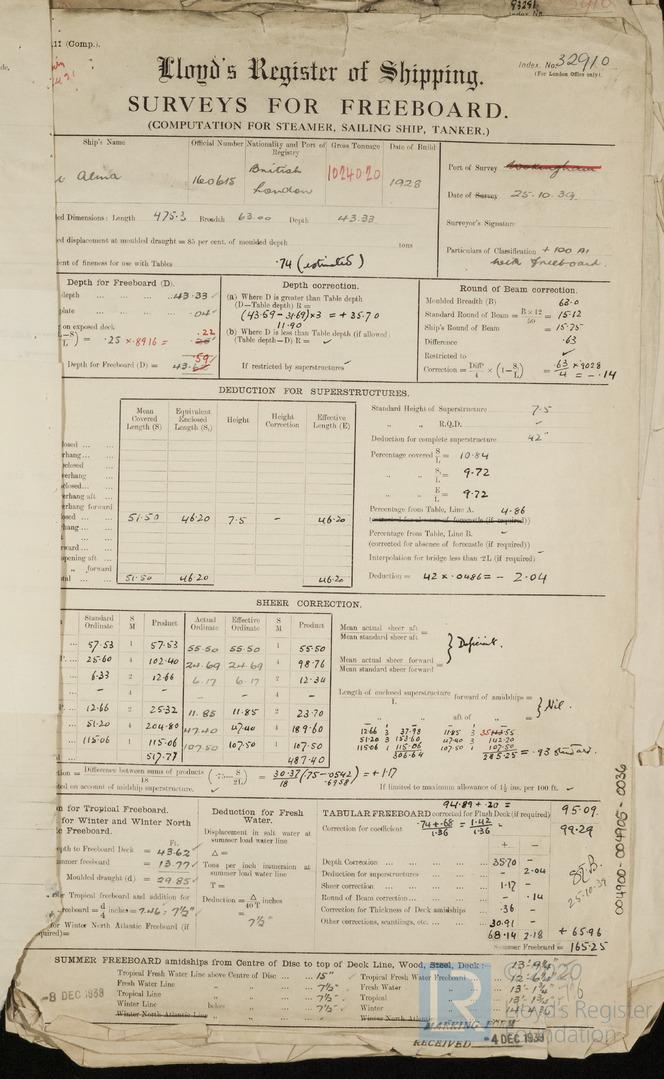 93291
Index No.
11 (Comp.).
Index. No. 32910
(For London Office only).
Lloyd's Register of Shipping.
SURVEYS FOR FREEBOARD.
(COMPUTATION FOR STEAMER, SAILING SHIP, TANKER.)
Ship's Name Official Number Nationality and Port of Registry Gross Tonnage Date of Build
Alma 160615 British London 10240.20 1928
Port of Survey Wokingham
Date of Survey 25.10.39
Surveyor's Signature
Particulars of Classification +100 A1 with freeboard.
ed Dimensions: Length 475.3 Breadth 63.00 Depth 43.33
ed displacement at moulded draught = 85 per cent. of moulded depth tons
ent of fineness for use with Tables .74 (estimated)
Depth for Freeboard (D).
depth ... 43.33
plate ... .04
on exposed deck
.25 × .8916 = .22
Depth for Freeboard (D) = 43.59
Depth correction.
(a) Where D is greater than Table depth
(D—Table depth) R =
(43.59 - 31.69) × 3 = + 35.70
11.90
(b) Where D is less than Table depth (if allowed)
(Table depth—D) R =
If restricted by superstructures
Round of Beam correction.
Moulded Breadth (B) 63.0
Standard Round of Beam = B × 12 / 50 = 15.12
Ship's Round of Beam = 15.75
Difference .63
Restricted to
Correction = Diff / 4 × (1 − S₁ / L) = .63 × .9028 / 4 = - .14
DEDUCTION FOR SUPERSTRUCTURES.
Mean Covered Length (S) Equivalent Enclosed Length (S₁) Height Height Correction Effective Length (E)
closed ...
rhang ...
closed
verhang
closed...
erhang aft
erhang forward
osed ... 51.50 46.20 7.5 - 46.20
hang ...
rward ...
opening aft ...
„ forward
tal ... 51.50 46.20 46.20
Standard Height of Superstructure 7.5
„ „ R.Q.D.
Deduction for complete superstructure 42"
Percentage covered S / L = 10.84
„ „ S₁ / L = 9.72
„ „ E / L = 9.72
Percentage from Table, Line A. 4.86
(corrected for absence of forecastle (if required))
Percentage from Table, Line B. -
(corrected for absence of forecastle (if required))
Interpolation for bridge less than ·2L (if required) -
Deduction = 42 × .0486 = - 2.04
SHEER CORRECTION.
Standard Ordinate S M Product Actual Ordinate Effective Ordinate S M Product
57.53 1 57.53 55.50 55.50 1 55.50
25.60 4 102.40 24.69 24.69 4 98.76
6.33 2 12.66 6.17 6.17 2 12.34
- 4 - - - 4 -
12.66 2 25.32 11.85 11.85 2 23.70
51.20 4 204.80 47.40 47.40 4 189.60
115.06 1 115.06 107.50 107.50 1 107.50
517.77 487.40
Mean actual sheer aft
Mean standard sheer aft =
Mean actual sheer forward
Mean standard sheer forward =
} Deficient.
Length of enclosed superstructure / L forward of amidships =
„ „ aft of „ =
} Nil.
12.66 3 37.98 11.85 3 35.55
51.20 3 153.60 47.40 3 142.20
115.06 1 115.06 107.50 1 107.50
306.64 285.25 = .93 standard.
tion = Difference between sums of products / 18 (·75 − S / 2L) = 30.37 / 18 (.75 - .0542) = + 1.17
.6958
ted on account of midship superstructure.
If limited to maximum allowance of 1½ ins. per 100 ft.
n for Tropical Freeboard.
for Winter and Winter North
c Freeboard.
Ft.
epth to Freeboard Deck = 43.62
ummer freeboard = 13.77
Moulded draught (d) = 29.85
or Tropical freeboard and addition for
reeboard = d / 4 inches = 7.46 : 7½"
for Winter North Atlantic Freeboard (if
quired) =
Deduction for Fresh Water.
Displacement in salt water at summer load water line
Δ =
Tons per inch immersion at summer load water line
T =
Deduction = Δ / 40 T inches
=
7½"
94.89 + 20 =
TABULAR FREEBOARD corrected for Flush Deck (if required) 95.09
Correction for coefficient .74 + .68 / 1.36 = 1.42 / 1.36 99.29
+ -
Depth Correction ... 35.70 -
Deduction for superstructures ... - 2.04
Sheer correction ... 1.17 -
Round of Beam correction... - .14
Correction for Thickness of Deck amidships .36 -
Other corrections, scantlings, etc. ... 30.91 -
68.14 2.18 + 65.96
Summer Freeboard = 165.25
25.10.39
004900-004905-0036
SUMMER FREEBOARD amidships from Centre of Disc to top of Deck Line, Wood, Steel, Deck:
Tropical Fresh Water Line above Centre of Disc ... 15" Tropical Fresh Water Freeboard
Fresh Water Line „ „ 7½" Fresh Water „
Tropical Line „ „ 7½" Tropical „
Winter Line below „ 7½" Winter „
Winter North Atlantic Line „ „ Winter North Atlantic
-8 DEC 1939
MARKING FORM
RECEIVED -4 DEC 1939
© 2020
LR Lloyd's Register
Foundation